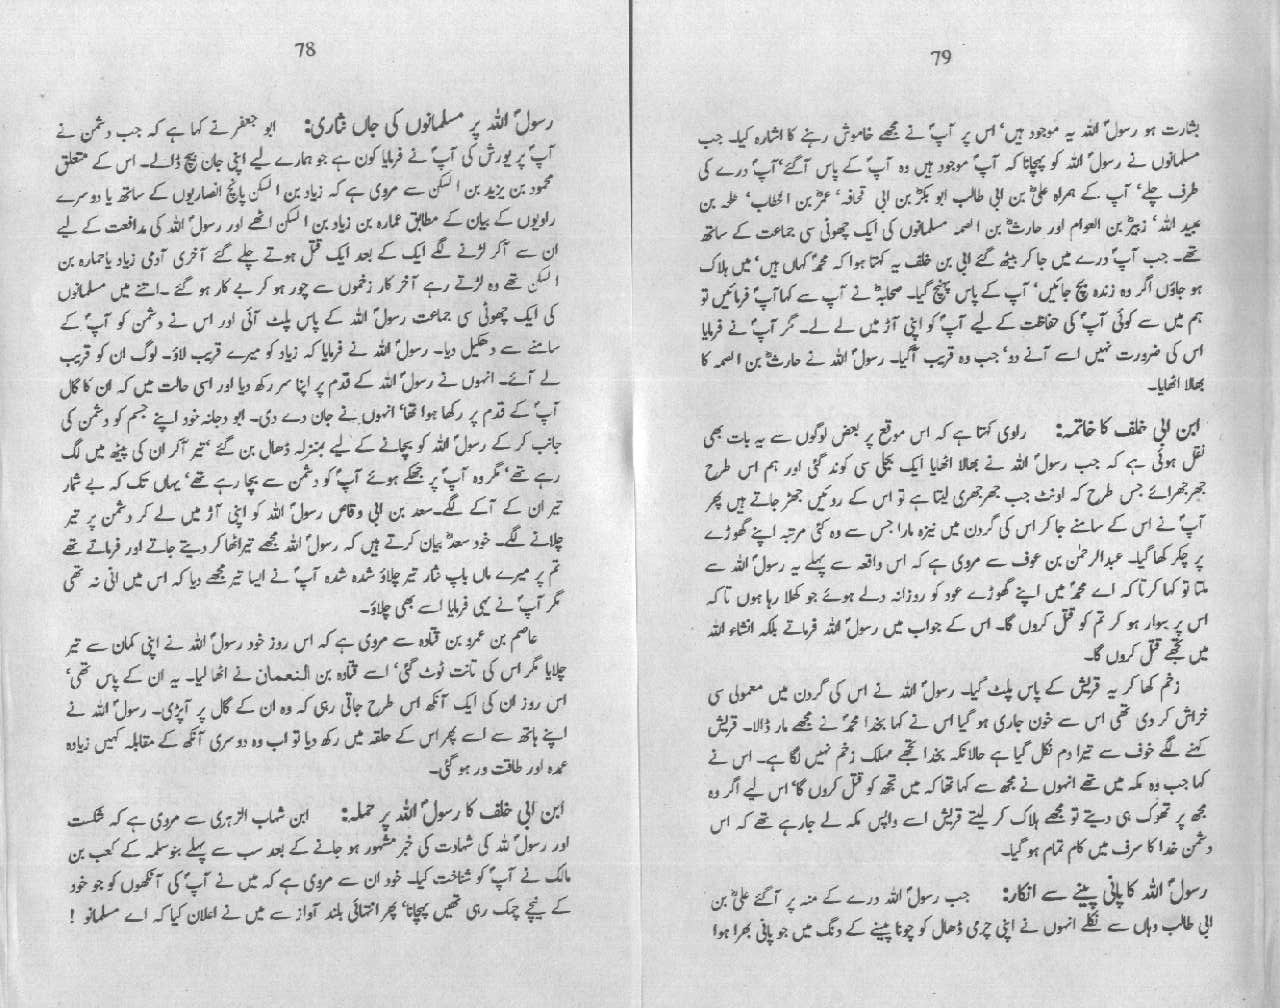 78
رسولؐ اللہ پر مسلمانوں کی جاں نثاری: ابو جعفر نے کہا ہے کہ جب دشمن نے
آپؐ پر یورش کی آپؐ نے فرمایا کون ہے جو ہمارے لیے اپنی جان بیچ ڈالے۔ اس کے متعلق
محمود بن یزید بن السکن سے مروی ہے کہ زیاد بن السکن پانچ انصاریوں کے ساتھ یا دوسرے
راویوں کے بیان کے مطابق عمارہ بن زیاد بن السکن اٹھے اور رسولؐ اللہ کی مدافعت کے لیے
ان سے آ کر لڑنے لگے ایک کے بعد ایک قتل ہوتے چلے گئے آخری آدمی زیاد یا عمارہ بن
السکن تھے وہ لڑتے رہے آخر کار زخموں سے چور ہو کر بے کار ہو گئے۔ اتنے میں مسلمانوں
کی ایک چھوٹی سی جماعت رسولؐ اللہ کے پاس پلٹ آئی اور اس نے دشمن کو آپؐ کے
سامنے سے دھکیل دیا۔ رسولؐ اللہ نے فرمایا کہ زیاد کو میرے قریب لاؤ۔ لوگ ان کو قریب
لے آئے۔ انہوں نے رسولؐ اللہ کے قدم پر اپنا سر رکھ دیا اور اسی حالت میں کہ ان کا گال
آپؐ کے قدم پر رکھا ہوا تھا، انہوں نے جان دے دی۔ ابو دجانہ خود اپنے جسم کو دشمن کی
جانب کر کے رسولؐ اللہ کو بچانے کے لیے بمنزلہ ڈھال بن گئے، تیر آ کر ان کی پیٹھ میں لگ
رہے تھے، مگر وہ آپؐ پر جھکے ہوئے آپؐ کو دشمن سے بچا رہے تھے، یہاں تک کہ بے شمار
تیر ان کے آکے لگے۔ سعد بن ابی وقاص رسولؐ اللہ کو اپنی آڑ میں لے کر دشمن پر تیر
چلانے لگے۔ خود سعدؓ بیان کرتے ہیں کہ رسولؐ اللہ مجھے تیر اٹھا کر دیتے جاتے اور فرماتے تھے
تم پر میرے ماں باپ نثار تیر چلاؤ شدہ شدہ آپؐ نے ایسا تیر مجھے دیا کہ اس میں انی نہ تھی
مگر آپؐ نے یہی فرمایا اسے بھی چلاؤ۔
عاصم بن عمرو بن قتادہ سے مروی ہے کہ اس روز خود رسولؐ اللہ نے اپنی کمان سے تیر
چلایا مگر اس کی تانت ٹوٹ گئی، اسے قتادہ بن النعمان نے اٹھا لیا۔ یہ ان کے پاس تھی،
اس روز ان کی ایک آنکھ اس طرح جاتی رہی کہ وہ ان کے گال پر آ پڑی۔ رسولؐ اللہ نے
اپنے ہاتھ سے اسے پھر اس کے حلقہ میں رکھ دیا تو اب وہ دوسری آنکھ کے مقابلہ کہیں زیادہ
عمدہ اور طاقت ور ہو گئی۔
ابن ابی خلف کا رسولؐ اللہ پر حملہ: ابن شہاب الزہری سے مروی ہے کہ شکست
اور رسولؐ للہ کی شہادت کی خبر مشہور ہو جانے کے بعد سب سے پہلے بنو سلمہ کے کعب بن
مالک نے آپؐ کو شناخت کیا۔ خود ان سے مروی ہے کہ میں نے آپؐ کی آنکھوں کو جو خود
کے نیچے چمک رہی تھیں پہچانا، پھر انتہائی بلند آواز سے میں نے اعلان کیا کہ اے مسلمانو !
79
بشارت ہو رسولؐ اللہ یہ موجود ہیں، اس پر آپؐ نے مجھے خاموش رہنے کا اشارہ کیا۔ جب
مسلمانوں نے رسولؐ اللہ کو پہچانا کہ آپؐ موجود ہیں وہ آپؐ کے پاس آ گئے، آپؐ درے کی
طرف چلے، آپؐ کے ہمراہ علیؓ بن ابی طالب ابو بکرؓ بن ابی قحافہ، عمرؓ بن الخطاب، طلحہ بن
عبید اللہ، زبیرؓ بن العوام اور حارثؓ بن الصمہ مسلمانوں کی ایک چھوٹی سی جماعت کے ساتھ
تھے۔ جب آپؐ درے میں جا کر بیٹھ گئے ابی بن خلف یہ کہتا ہوا کہ محمدؐ کہاں ہیں، میں ہلاک
ہو جاؤں اگر وہ زندہ بچ جائیں، آپ کے پاس پہنچ گیا۔ صحابہؓ نے آپ سے کہا آپؐ فرمائیں تو
ہم میں سے کوئی آپؐ کی حفاظت کے لیے آپؐ کو اپنی آڑ میں لے لے۔ مگر آپؐ نے فرمایا
اس کی ضرورت نہیں اسے آنے دو، جب وہ قریب آگیا۔ رسولؐ اللہ نے حارثؓ بن الصمہ کا
بھالا اٹھایا۔
ابن ابی خلف کا خاتمہ: راوی کہتا ہے کہ اس موقع پر بعض لوگوں سے یہ بات بھی
نقل ہوئی ہے کہ جب رسولؐ اللہ نے بھالا اٹھایا ایک بجلی سی کوند گئی اور ہم اس طرح
جھرجھرائے جس طرح کہ اونٹ جب جھرجھری لیتا ہے تو اس کے روئیں جھڑ جاتے ہیں پھر
آپؐ نے اس کے سامنے جا کر اس کی گردن میں نیزہ مارا جس سے وہ کئی مرتبہ اپنے گھوڑے
پر چکر کھا گیا۔ عبدالرحمٰن بن عوف سے مروی ہے کہ اس واقعہ سے پہلے یہ رسولؐ اللہ سے
ملتا تو کہا کرتا کہ اے محمدؐ میں اپنے گھوڑے عود کو روزانہ دلے ہوئے جو کھلا رہا ہوں تا کہ
اس پر سوار ہو کر تم کو قتل کروں گا۔ اس کے جواب میں رسولؐ اللہ فرماتے بلکہ انشاء اللہ
میں تجھے قتل کروں گا۔
زخم کھا کر یہ قریش کے پاس پلٹ گیا۔ رسولؐ اللہ نے اس کی گردن میں معمولی سی
خراش کر دی تھی اس سے خون جاری ہو گیا اس نے کہا بخدا محمدؐ نے مجھے مار ڈالا۔ قریش
کہنے لگے خوف سے تیرا دم نکل گیا ہے حالانکہ بخدا تجھے مہلک زخم نہیں لگا ہے۔ اس نے
کہا جب وہ مکہ میں تھے انہوں نے مجھ سے کہا تھا کہ میں تجھ کو قتل کروں گا، اس لیے اگر وہ
مجھ پر تھوک ہی دیتے تو مجھے ہلاک کر لیتے قریش اسے واپس مکہ لے جا رہے تھے کہ اس
دشمن خدا کا سرف میں کام تمام ہو گیا۔
رسولؐ اللہ کا پانی پینے سے انکار: جب رسولؐ اللہ درے کے منہ پر آ گئے علیؓ بن
ابی طالب وہاں سے نکلے انہوں نے اپنی چرمی ڈھال کو چونا پینے کے دنگ میں جو پانی بھرا ہوا